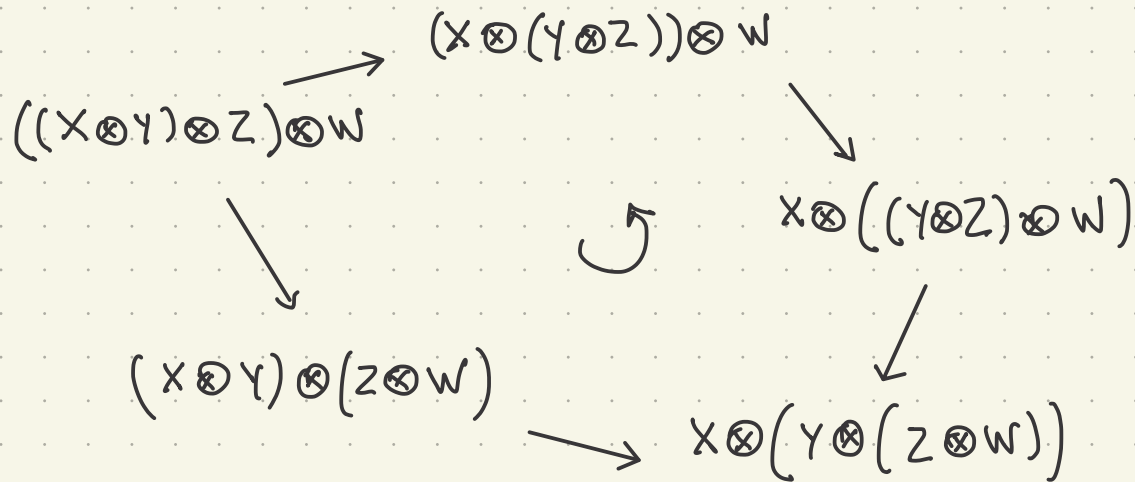 (X⊗(Y⊗Z))⊗W
((X⊗Y)⊗Z)⊗W
X⊗((Y⊗Z)⊗W)
(X⊗Y)⊗(Z⊗W)
X⊗(Y⊗(Z⊗W))